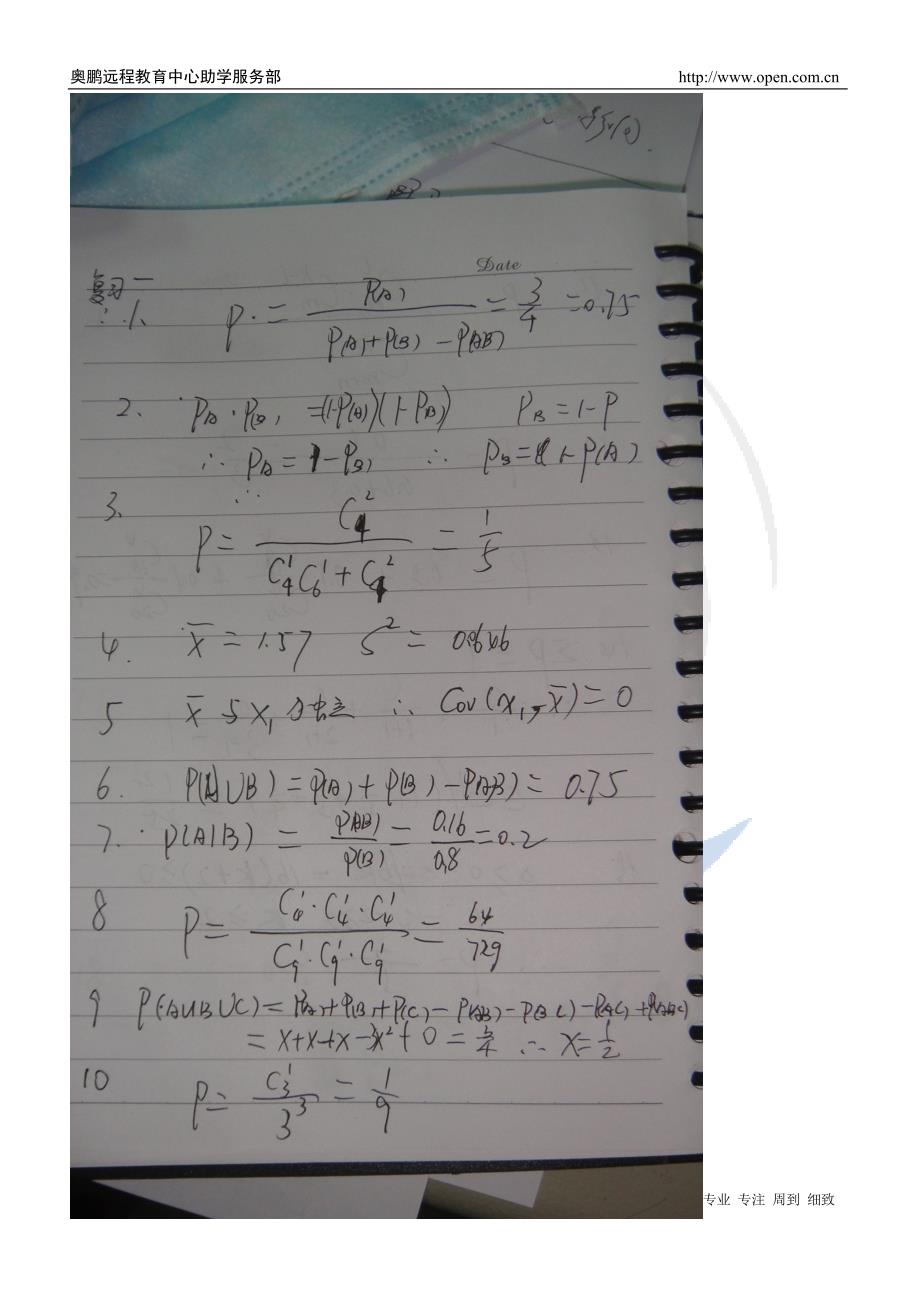 奥鹏远程教育中心助学服务部 http://www.open.com.cn
Date
复习一
1、 P = P(A) / (P(A)+P(B)-P(AB)) = 3/4 = 0.75
2、 P(A)·P(B) = (1-P(A))(1-P(B)) P_B = 1-P
∴ P_A = 1-P(B) ∴ P_B = 1-P(A)
3、
P = C₄² / (C₄¹C₆¹+C₄²) = 1/5
4. x̄ = 1.57 S² =
5 x̄ 与 X₁ 独立 ∴ Cov(X₁, x̄) = 0
6. P(A∪B) = P(A)+P(B)-P(AB) = 0.75
7. P(A|B) = P(AB)/P(B) = 0.16/0.8 = 0.2
8 P = C₄¹·C₄¹·C₄¹ / C₉¹·C₉¹·C₉¹ = 64/729
9 P(A∪B∪C) = P(A)+P(B)+P(C)-P(AB)-P(BC)-P(AC)+P(ABC)
= x+x+x-3x²+0 = 3/4 ∴ x = 1/2
10 P = C₃¹/3³ = 1/9
专业 专注 周到 细致